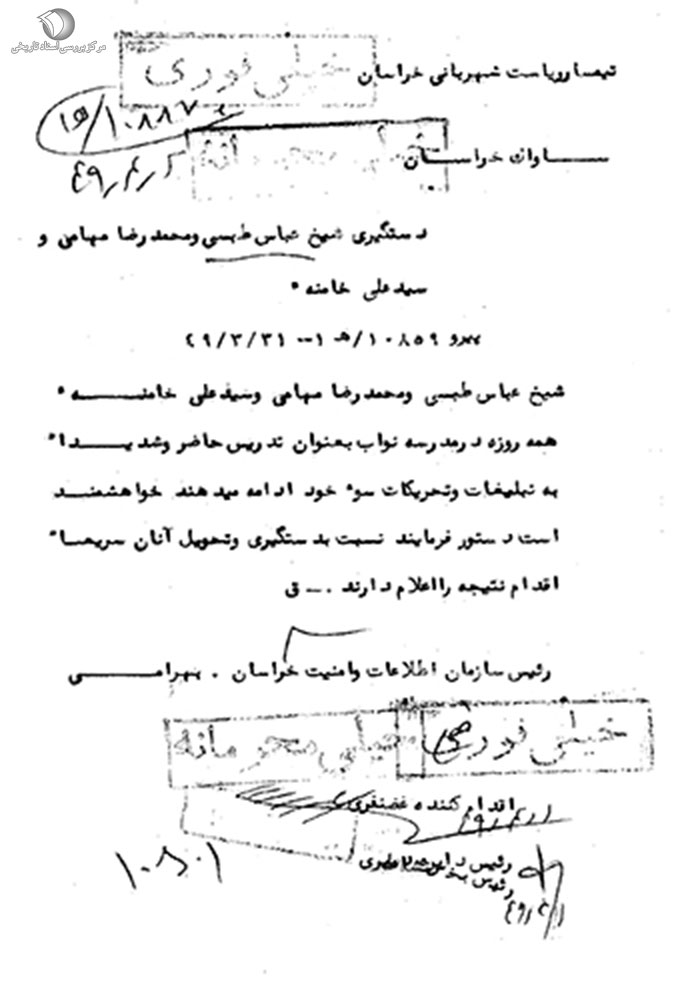 مرکز بررسی اسناد تاریخی
خیلی فوری
تیمسار ریاست شهربانی خراسان
۱۵/۱۰۸۸۷
ساواک خراسان
خیلی محرمانه
۴۹/۴/۲
دستگیری شیخ عباس طبسی ومحمدرضا مهامی و
سیدعلی خامنه ٴ
پیرو ۱۰۸۵۹/هـ ۱ -- ۴۹/۳/۳۱
شیخ عباس طبسی ومحمدرضا مهامی وسیدعلی خامنه ٴ
همه روزه درمدرسه نواب بعنوان تدریس حاضر وشدیدا ً
به تبلیغات وتحریکات سوء خود ادامه میدهند خواهشمند
است دستور فرمایند نسبت بدستگیری وتحویل آنان سریعا ً
اقدام نتیجه رااعلام دارند . -- ق
رئیس سازمان اطلاعات وامنیت خراسان . بهرامی
خیلی فوری
خیلی محرمانه
اقدام کننده غضنفری
۴۹/۴/۱
رئیس
رئیس بخش
۱۰۸۰۱
۴۹/۴/۱